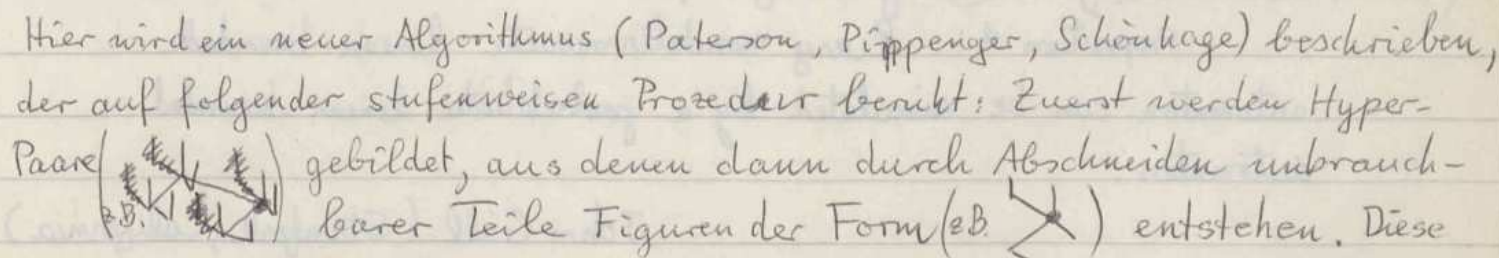 Hier wird ein neuer Algorithmus (Paterson, Pippenger, Schönhage) beschrieben,
der auf folgender stufenweisen Prozedur beruht: Zuerst werden Hyper-
Paare (z.B. ) gebildet, aus denen dann durch Abschneiden unbrauch-
barer Teile Figuren der Form (z.B. ) entstehen. Diese